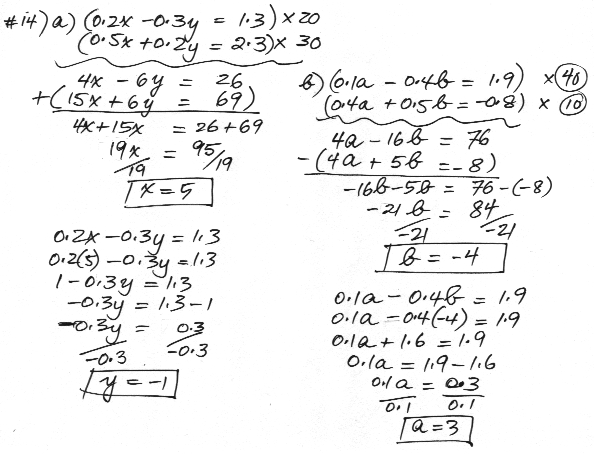 #14) a) (0.2x - 0.3y = 1.3) x 20
(0.5x + 0.2y = 2.3) x 30
4x - 6y = 26
+(15x + 6y = 69)
4x + 15x = 26 + 69
19x/19 = 95/19
x = 5
0.2x - 0.3y = 1.3
0.2(5) - 0.3y = 1.3
1 - 0.3y = 1.3
-0.3y = 1.3 - 1
-0.3y/-0.3 = 0.3/-0.3
y = -1
b) (0.1a - 0.4b = 1.9) x 40
(0.4a + 0.5b = -0.8) x 10
4a - 16b = 76
-(4a + 5b = -8)
-16b - 5b = 76 - (-8)
-21b/-21 = 84/-21
b = -4
0.1a - 0.4b = 1.9
0.1a - 0.4(-4) = 1.9
0.1a + 1.6 = 1.9
0.1a = 1.9 - 1.6
0.1a/0.1 = 0.3/0.1
a = 3